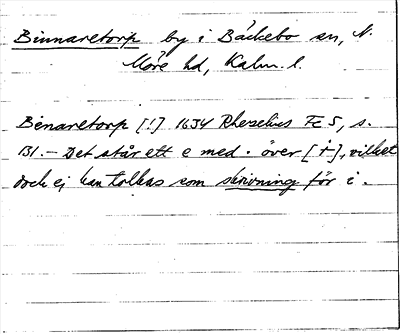 Binnaretorp by i Bäckebo sn, N.
Möre hd, Kalm. l.
Benaretorp [!] 1634 Rhezelius Fc 5, s.
131. – Det står ett e med · över [ė], vilket
dock ej kan tolkas som skrivning för i.